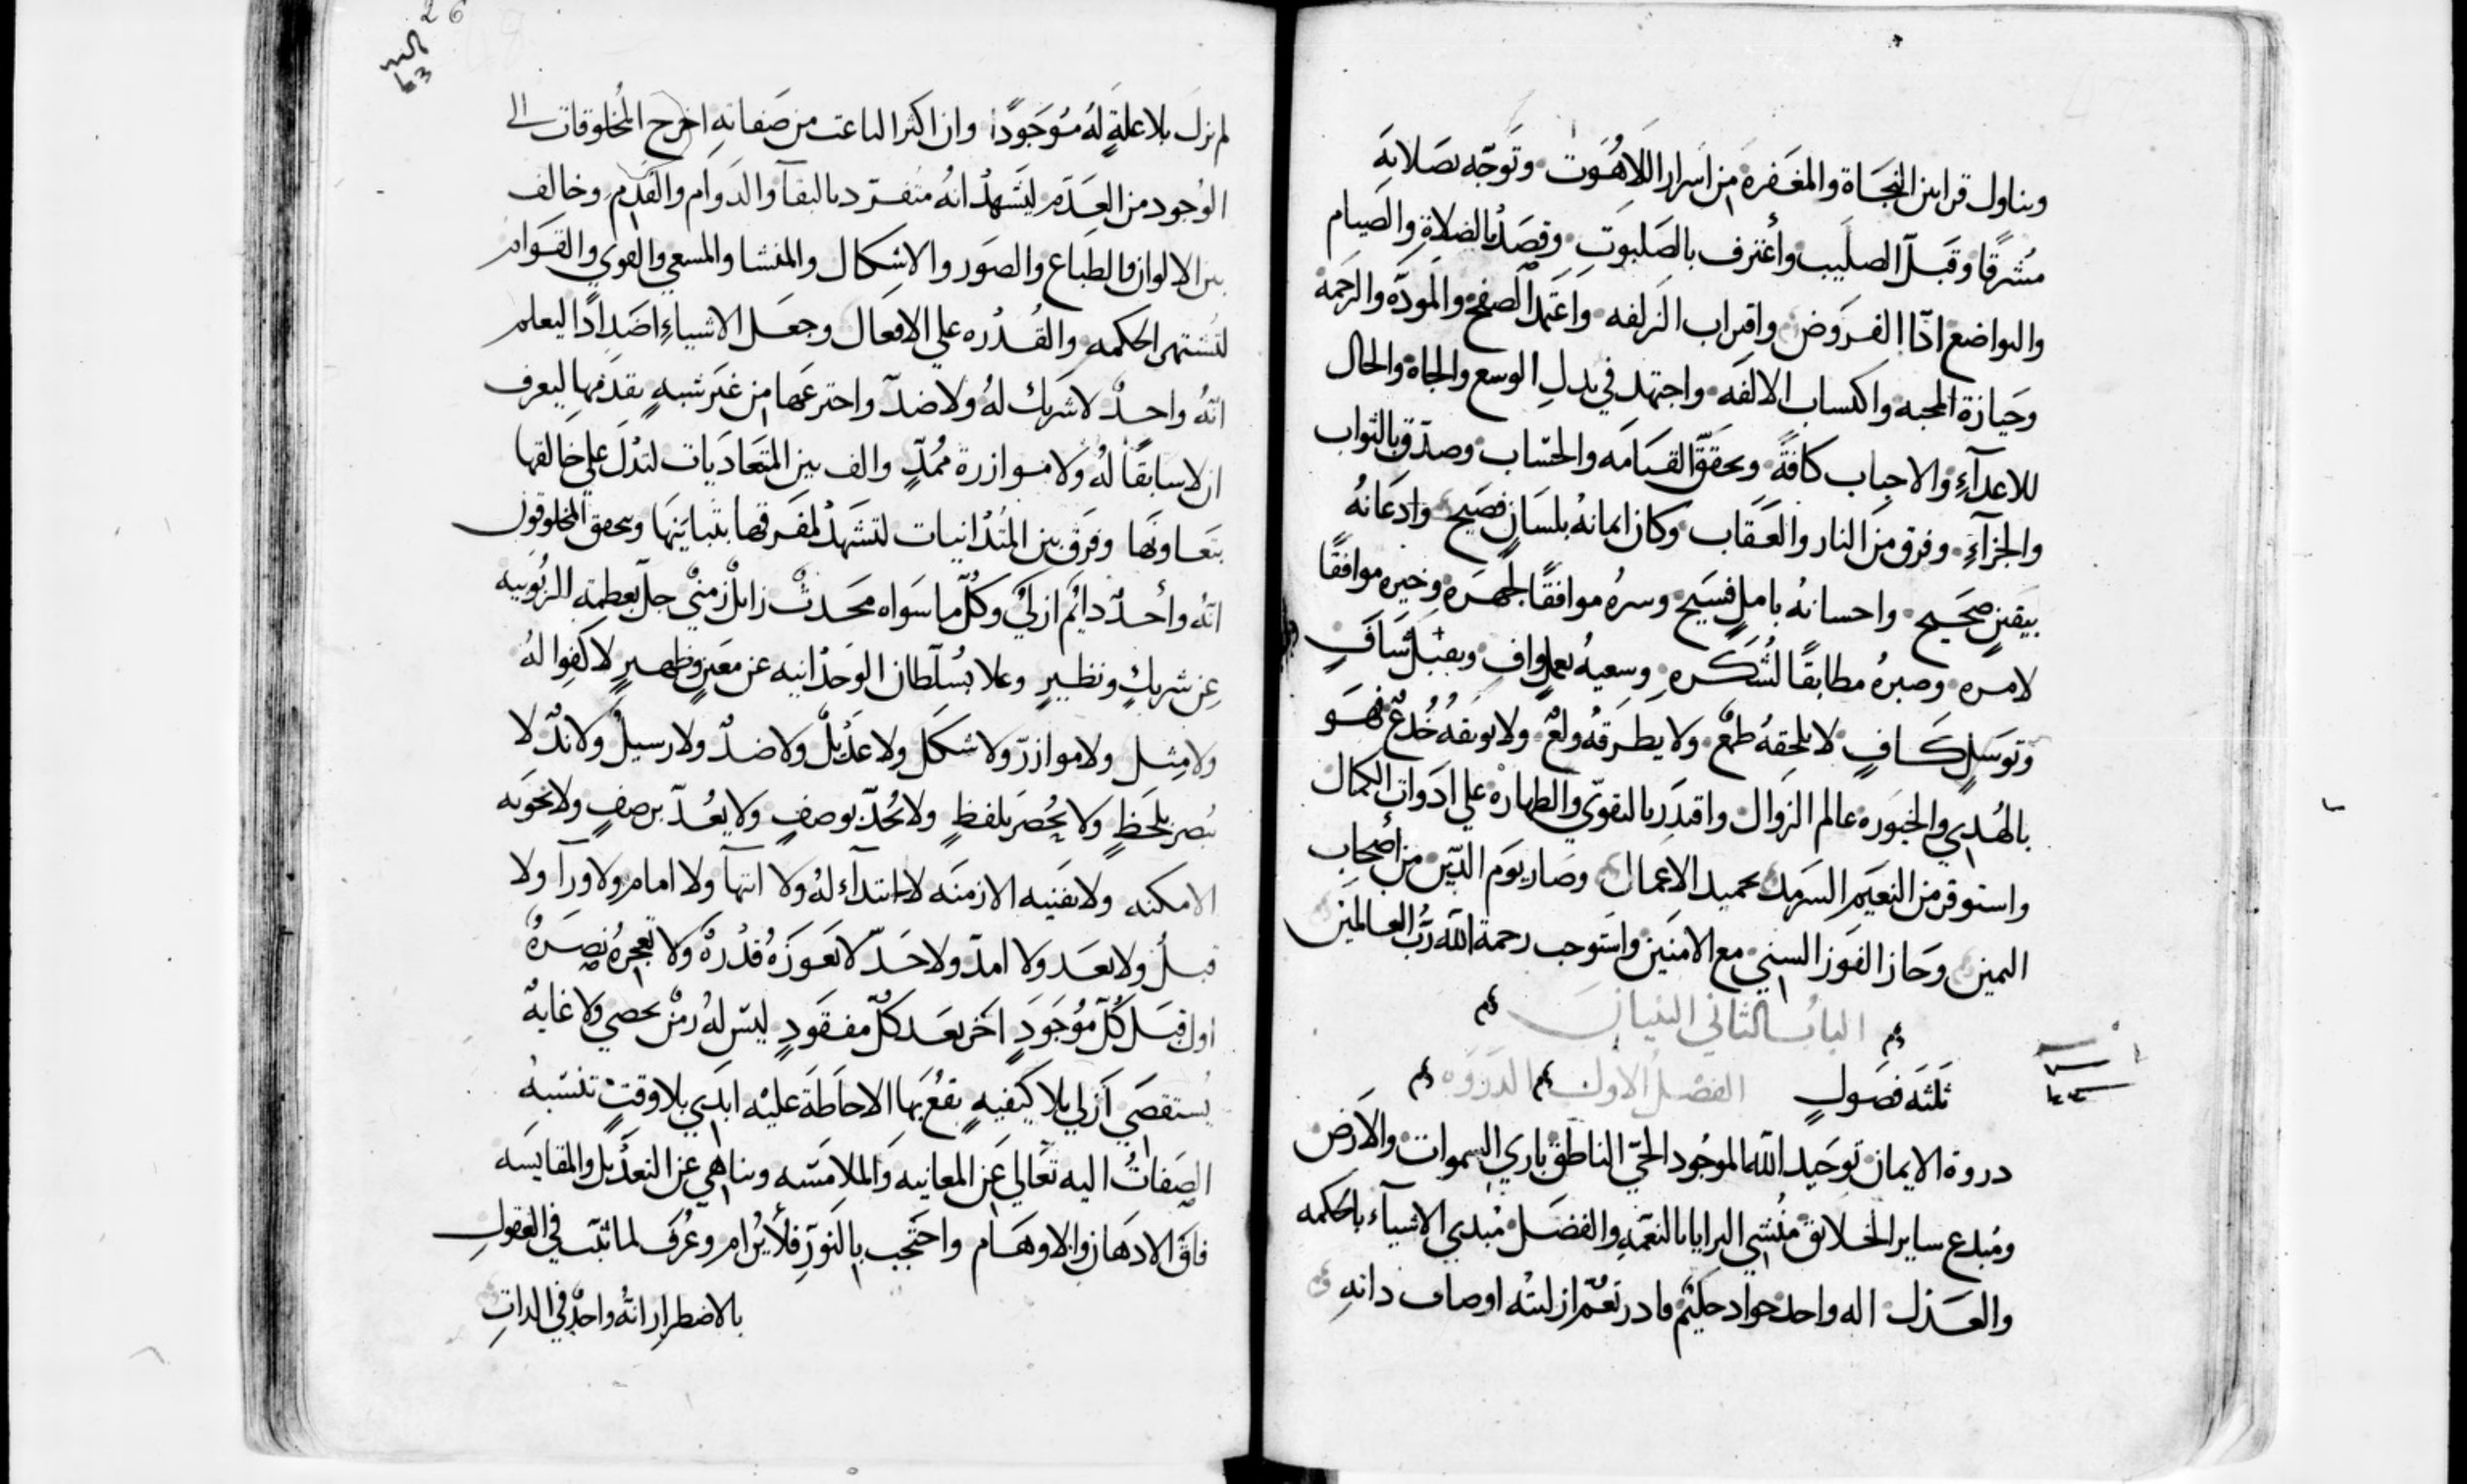 وتناول قرابين النجاة والمغفرة من اسرار اللاهوت وتوجه بصلاته
مشرقًا وقبل الصليب واعترف بالصلبوت وقصد بالصلاة والصيام
والتواضع ادّا الفروض واقتراب الزلفه واعتمد الصفح والمودّه والرحمة
وحيازة المحبه واكتساب الالفه واجتهد في بدل الوسع والجاه والحال
للاعدآءِ والاحباب كافةً وتحقق القيامه والحساب وصدق بالثواب
والجزآءِ وفرق من النار والعقاب وكان ايمانه بلسانٍ فصيح وادعانهُ
بيقينٍ صحيح واحسانه باملٍ فسيح وسرهُ موافقًا لجهره وخيره موافقًا
لامره وصبرهُ مطابقًا لشكره وسعيهُ بعملٍ وافٍ وبقبل شافٍ
وتوسلٍ كافٍ لا يلحقهُ طمعٌ ولا يطرقهُ ولعٌ ولا يوبقهُ خدعٌ فهو
بالهدي والخبوره عالم الزوال واقتدر بالتقوّي والطهاره علي ادوات الكمال
واستوفر من النعيم السرمد بحميد الاعمال وصار يوم الدّين من أصحاب
اليمين وحاز الفوز السني مع الامنين واستوجب رحمة الله ربّ العالمين
الباب الثاني البنيان
ثلثه فصول الفصل الاول الدروه
دروة الايمان توحيد الله الموجود الحيّ الناطق باري السموات والارض
ومبدع ساير الخلايق منشي البرايا بالنعمه والفضل مبدي الاشيآء بالحكمه
والعدل اله واحد جواد حكيم قادر تعم ازليته اوصاف داته
26
لم يزل بلا علةٍ لهُ موجودًا وان اكثر الباعث من صفاته اخرج المخلوقات الى
الوجود من العدم ليشهد انهُ متفرد بالبقآ والدوام والقدم وخالف
بين الالوان والطباع والصور والاشكال والمنشا والمسعي والقوي والقوام
لتشتهر الحكمه والقدره علي الافعال وجعل الاشياءِ اضدادًا ليعلم
انّهُ واحدٌ لا شريك لهُ ولا ضدّ واخترعها من غير شبهٍ يقدمها ليعرف
ان لا سابقًا لهُ ولا موازرة ممدٍّ والف بين المتعاديات لتدل علي خالقها
بتعاونها وفرق بين المتدانيات لتشهد لمفرقها بتباينها ويحقق المخلوقون
انّه وأحدٌ دايم ازليٌ وكلّ ما سواه محدث زايلٌ زمنيٌ جلّ بعظمة الربوبيه
عن شريكٍ ونظيرٍ وعلا بسلطان الوحدانيه عن معينٍ وظهيرٍ لا كفوا لهُ
ولا مثل ولا موازر ولا شكل ولا عديلٌ ولا ضدّ ولا رسيلٌ ولا ندّ لا
يبصر بلحظٍ ولا يحصر بلفظٍ ولا يُحدّ بوصفٍ ولا يعُدّ برصفٍ ولا تحويه
الامكنه ولا تفنيه الازمنه لا ابتدآء لهُ ولا انتهآ ولا امام ولا ورآ ولا
قبلٌ ولا بعد ولا امدّ ولا حدّ لا تعوزهُ قدرةٌ ولا تعجزهُ نصرهٌ
اول قبل كلّ موجودٍ اخر بعد كلّ مفقودٍ ليس لهُ زمنٌ يحصي ولا غايةٌ
تستقصي أزلي بلا كيفيهٍ يقع بها الاحاطة عليه ابدي بلا وقتٍ تنسبهُ
الصفات اليه تعالي عن المعانيه والملامسه وتناهي عن التعديل والمقايسه
فاق الادهان والاوهام واحتجب بالنور فلا يُرام وعُرف لما ثبت في العقول
بالاضطرار انهُ واحدٌ في الدات